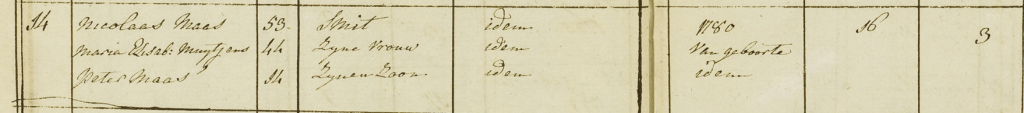 14 Nicolaas Maas 53 Smit idem 1780 16 3
Maria Elisab: Muytjens 44 Zyne Vrouw idem Van geboorte
Peter Maas 14 Zynen Zoon idem idem